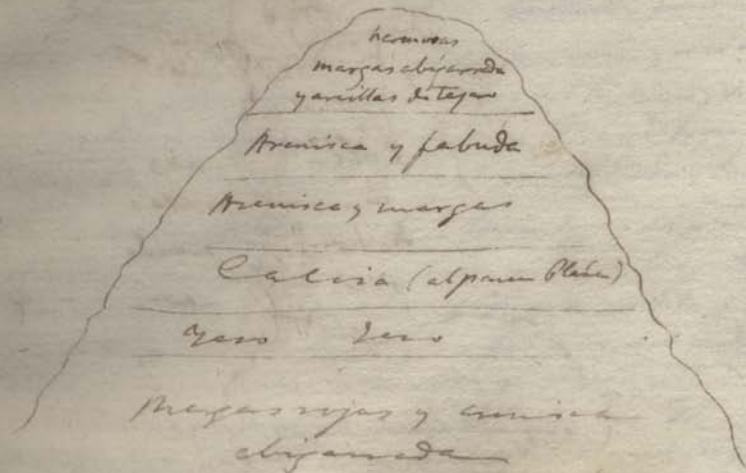 hermosas
margas abigarrada
y arcillas de tejar
Arenisca y
Arenisca y margas
Caliza (al parecer
Yeso Yeso
Margas rojas y arenisca
abigarrada